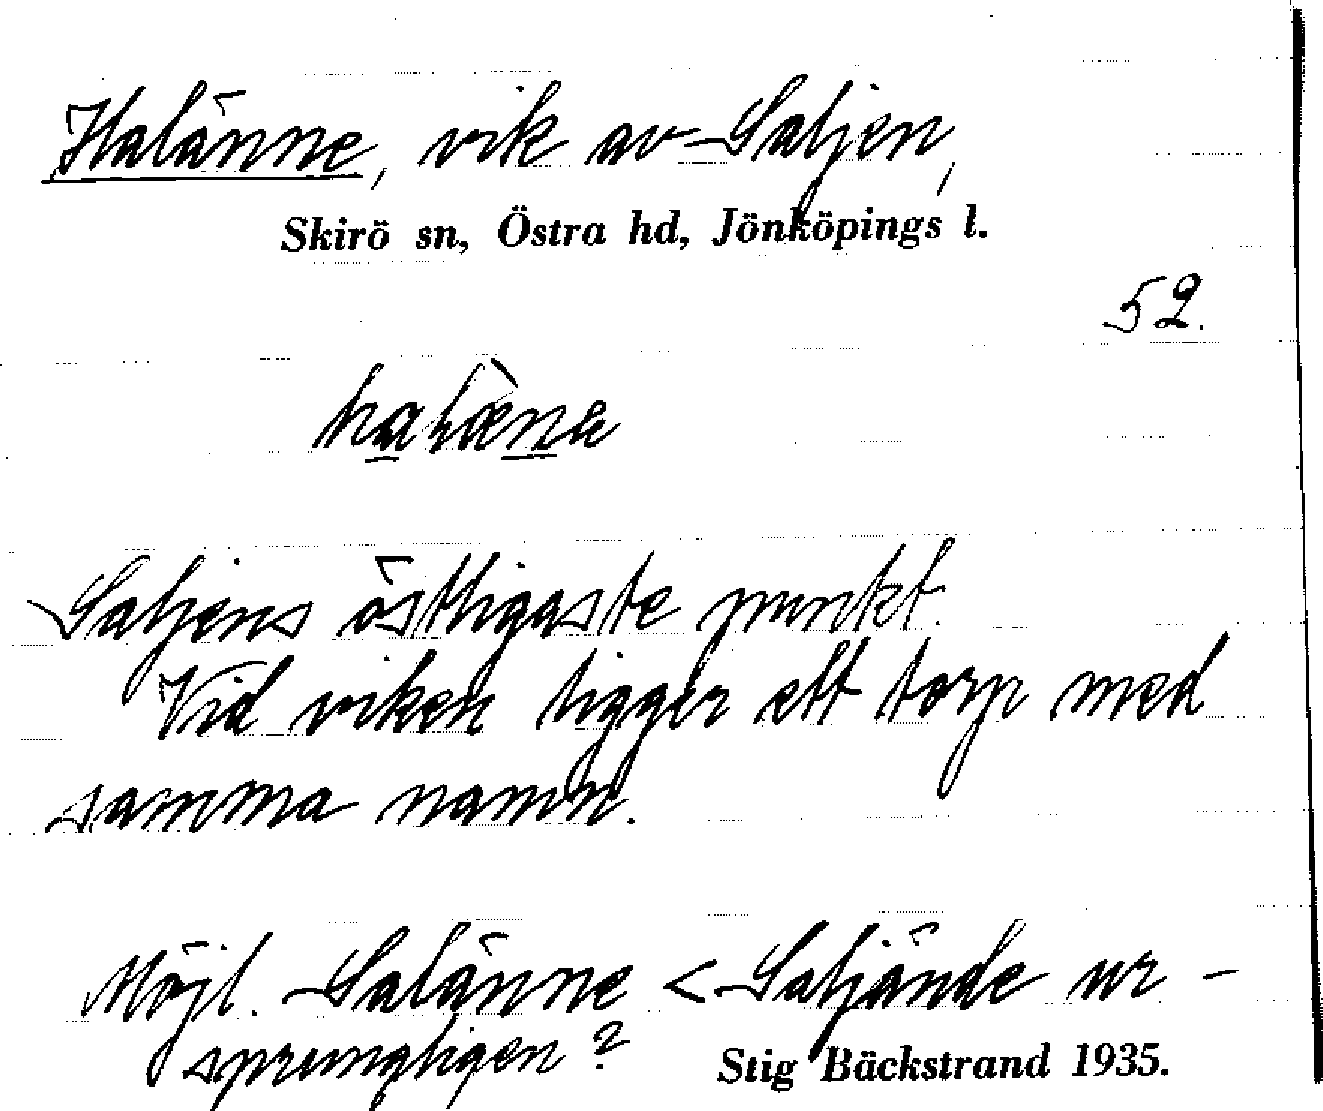 Halänne, vik av Saljen,
Skirö sn, Östra hd, Jönköpings l.
52.
halæ̀na
Saljens östligaste punkt.
Vid viken ligger ett torp med
samma namn.
Möjl. Salänne < Saljände ur-
sprungligen?
Stig Bäckstrand 1935.